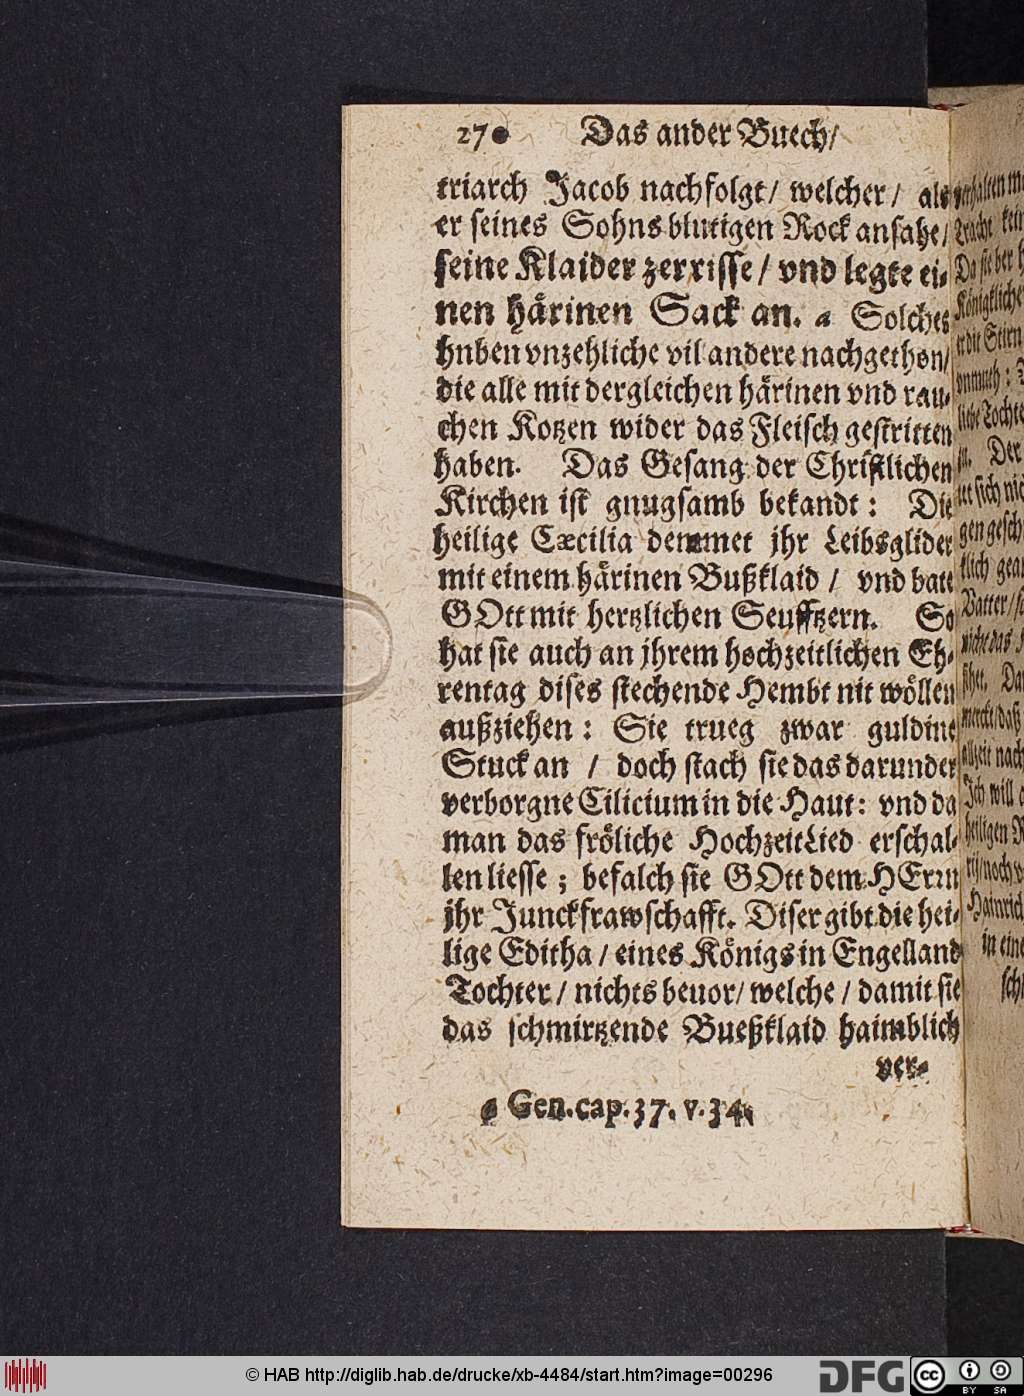 270 Das ander Buech/
triarch Jacob nachfolgt/ welcher/ als
er seines Sohns blutigen Rock ansahe/
seine Klaider zerrisse/ vnd legte ei-
nen härinen Sack an. a Solches
hnben vnzehliche vil andere nachgethon/
die alle mit dergleichen härinen vnd rau-
chen Kotzen wider das Fleisch gestritten
haben. Das Gesang der Christlichen
Kirchen ist gnugsamb bekandt: Die
heilige Cæcilia demmet jhr Leibsglider
mit einem härinen Bußklaid / vnd batt
GOtt mit hertzlichen Seufftzern. So
hat sie auch an jhrem hochzeitlichen Eh-
rentag dises stechende Hembt nit wöllen
außziehen: Sie trueg zwar guldine
Stuck an / doch stach sie das darunder
verborgne Cilicium in die Haut: vnd da
man das fröliche HochzeitLied erschal-
len liesse; befalch sie GOtt dem HErrn
jhr Junckfrawschafft. Diser gibt die hei-
lige Editha/ eines Königs in Engelland
Tochter/ nichts beuor/ welche/ damit sie
das schmirtzende Bueßklaid haimblich
ver-
a Gen. cap. 37. v. 34.
© HAB http://diglib.hab.de/drucke/xb-4484/start.htm?image=00296
DFG
cc
BY SA